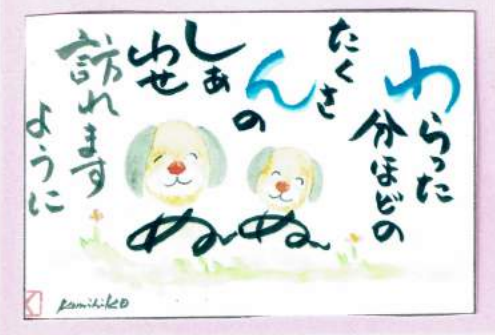 わらった
分ほどの
たくさ
んの
しあ
わせ
訪れます
ように
Kamihiko